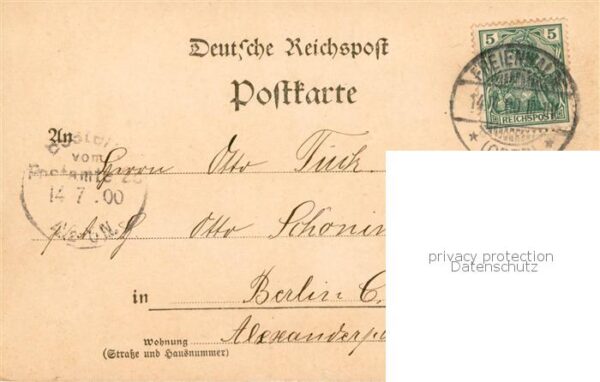 Deutsche Reichspost
Postkarte
5 5
REICHSPOST
FREIENWALDE
(ODER)
An
Herrn Otto Tuck
vom
14 7 .00
Otto Schönin
in Berlin C.
Wohnung
(Straße und Hausnummer)
Alexanderp
privacy protection
Datenschutz